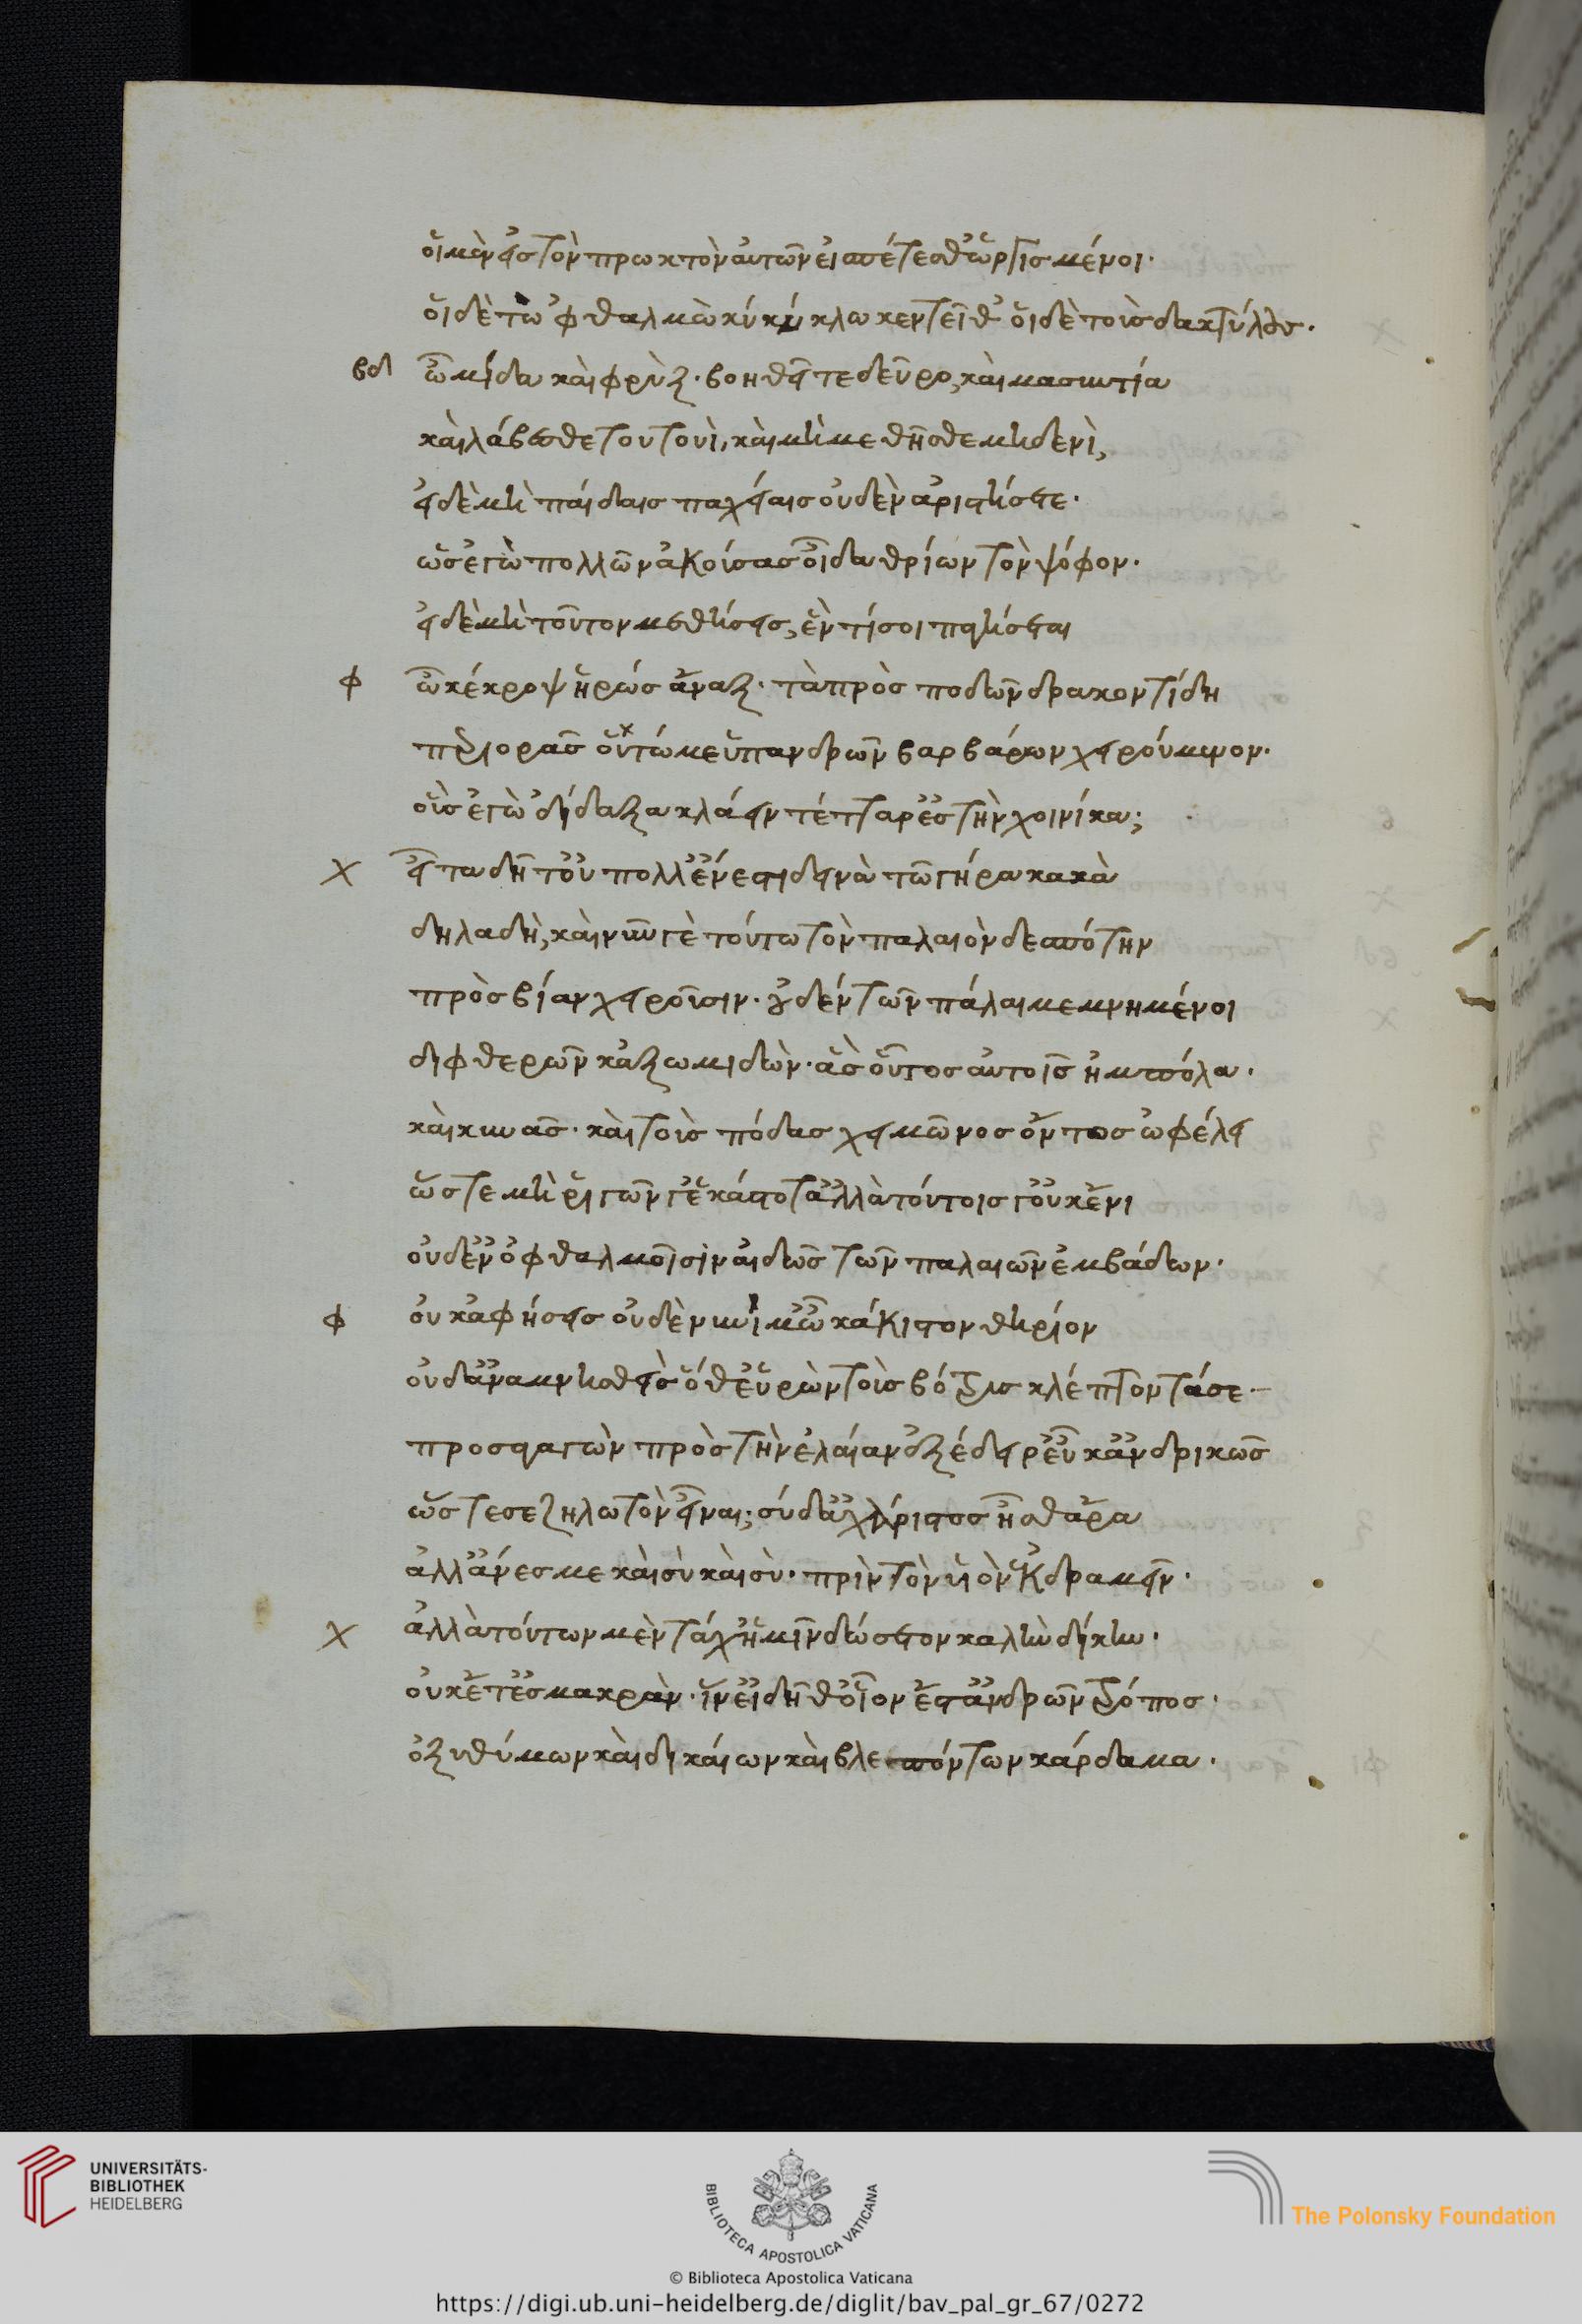 οἱ μὲν ἐς τὸν πρωκτὸν αὐτῶν εἰσπέτεσθ' ὠργισμένοι·
οἱ δὲ τὠφθαλμὼ κύκλω κεντεῖθ' οἱ δὲ τοὺς δακτύλους·
βδ ὦ μίδα καὶ φρὺξ· βοηθεῖτε δεῦρο, καὶ μασιντία
καὶ λάβεσθε τουτουὶ, καὶ μὴ μεθῆσθε μηδενὶ,
εἰ δὲ μὴ πέδαις παχείαις οὐδὲν ἀριστήσετε·
ὡς ἐγὼ πολλῶν ἀκούσας οἶδα θρίων τὸν ψόφον·
εἰ δὲ μὴ τοῦτον μεθήσεις, ἔν τί σοι παγήσεται
φ ὦ κέκροψ ἥρως ἄναξ· τὰ πρὸς ποδῶν δρακοντίδη
περιορᾶς οὕτω μ' ὑπ' ἀνδρῶν βαρβάρων χειρούμενον·
οὓς ἐγὼ 'δίδαξα κλάειν τέτταρ' ἐς τὴν χοίνικα;
χ εἶτα δῆτ' οὐ πόλλ' ἔνεστι δεινὰ τῷ γήρᾳ κακὰ
δηλαδὴ, καὶ νῦν γε τούτω τὸν παλαιὸν δεσπότην
πρὸς βίαν χειροῦσιν· οὐδὲν τῶν πάλαι μεμνημένοι
διφθερῶν κἀξωμίδων· ἃς οὗτος αὐτοῖς ἠμπόλα·
καὶ κυνᾶς· καὶ τοὺς πόδας χειμῶνος ὄντος ὠφέλει
ὥστε μὴ ῥιγῶν γ' ἑκάστοτ' ἀλλὰ τούτοις γ' οὐκ ἔνι
οὐδ' ἐν ὀφθαλμοῖσιν αἰδὼς τῶν παλαιῶν ἐμβάδων·
φ οὐκ ἀφήσεις οὐδὲ νυνί μ' ὦ κάκιστον θηρίον
οὐδ' ἀναμνησθεὶς ὅθ' εὑρὼν τοὺς βότρυς κλέπτοντά σε
προσαγαγὼν πρὸς τὴν ἐλαίαν ἐξέδειρ' εὖ κἀνδρικῶς
ὥστε σε ζηλωτὸν εἶναι; σὺ δ' ἀχάριστος ἦσθ' ἄρα
ἀλλ' ἄνες με καὶ σὺ καὶ σὺ· πρὶν τὸν υἱὸν ἐκδραμεῖν·
χ ἀλλὰ τούτων μὲν τάχ' ἡμῖν δώσετον καλὴν δίκην·
οὐκέτ' ἐς μακρὰν· ἵν' εἰδῆθ' οἷόν ἐστ' ἀνδρῶν τρόπος·
ὀξυθύμων καὶ δικαίων καὶ βλεπόντων κάρδαμα·
UNIVERSITÄTS-
BIBLIOTHEK
HEIDELBERG
BIBLIOTECA APOSTOLICA VATICANA
The Polonsky Foundation
© Biblioteca Apostolica Vaticana
https://digi.ub.uni-heidelberg.de/diglit/bav_pal_gr_67/0272